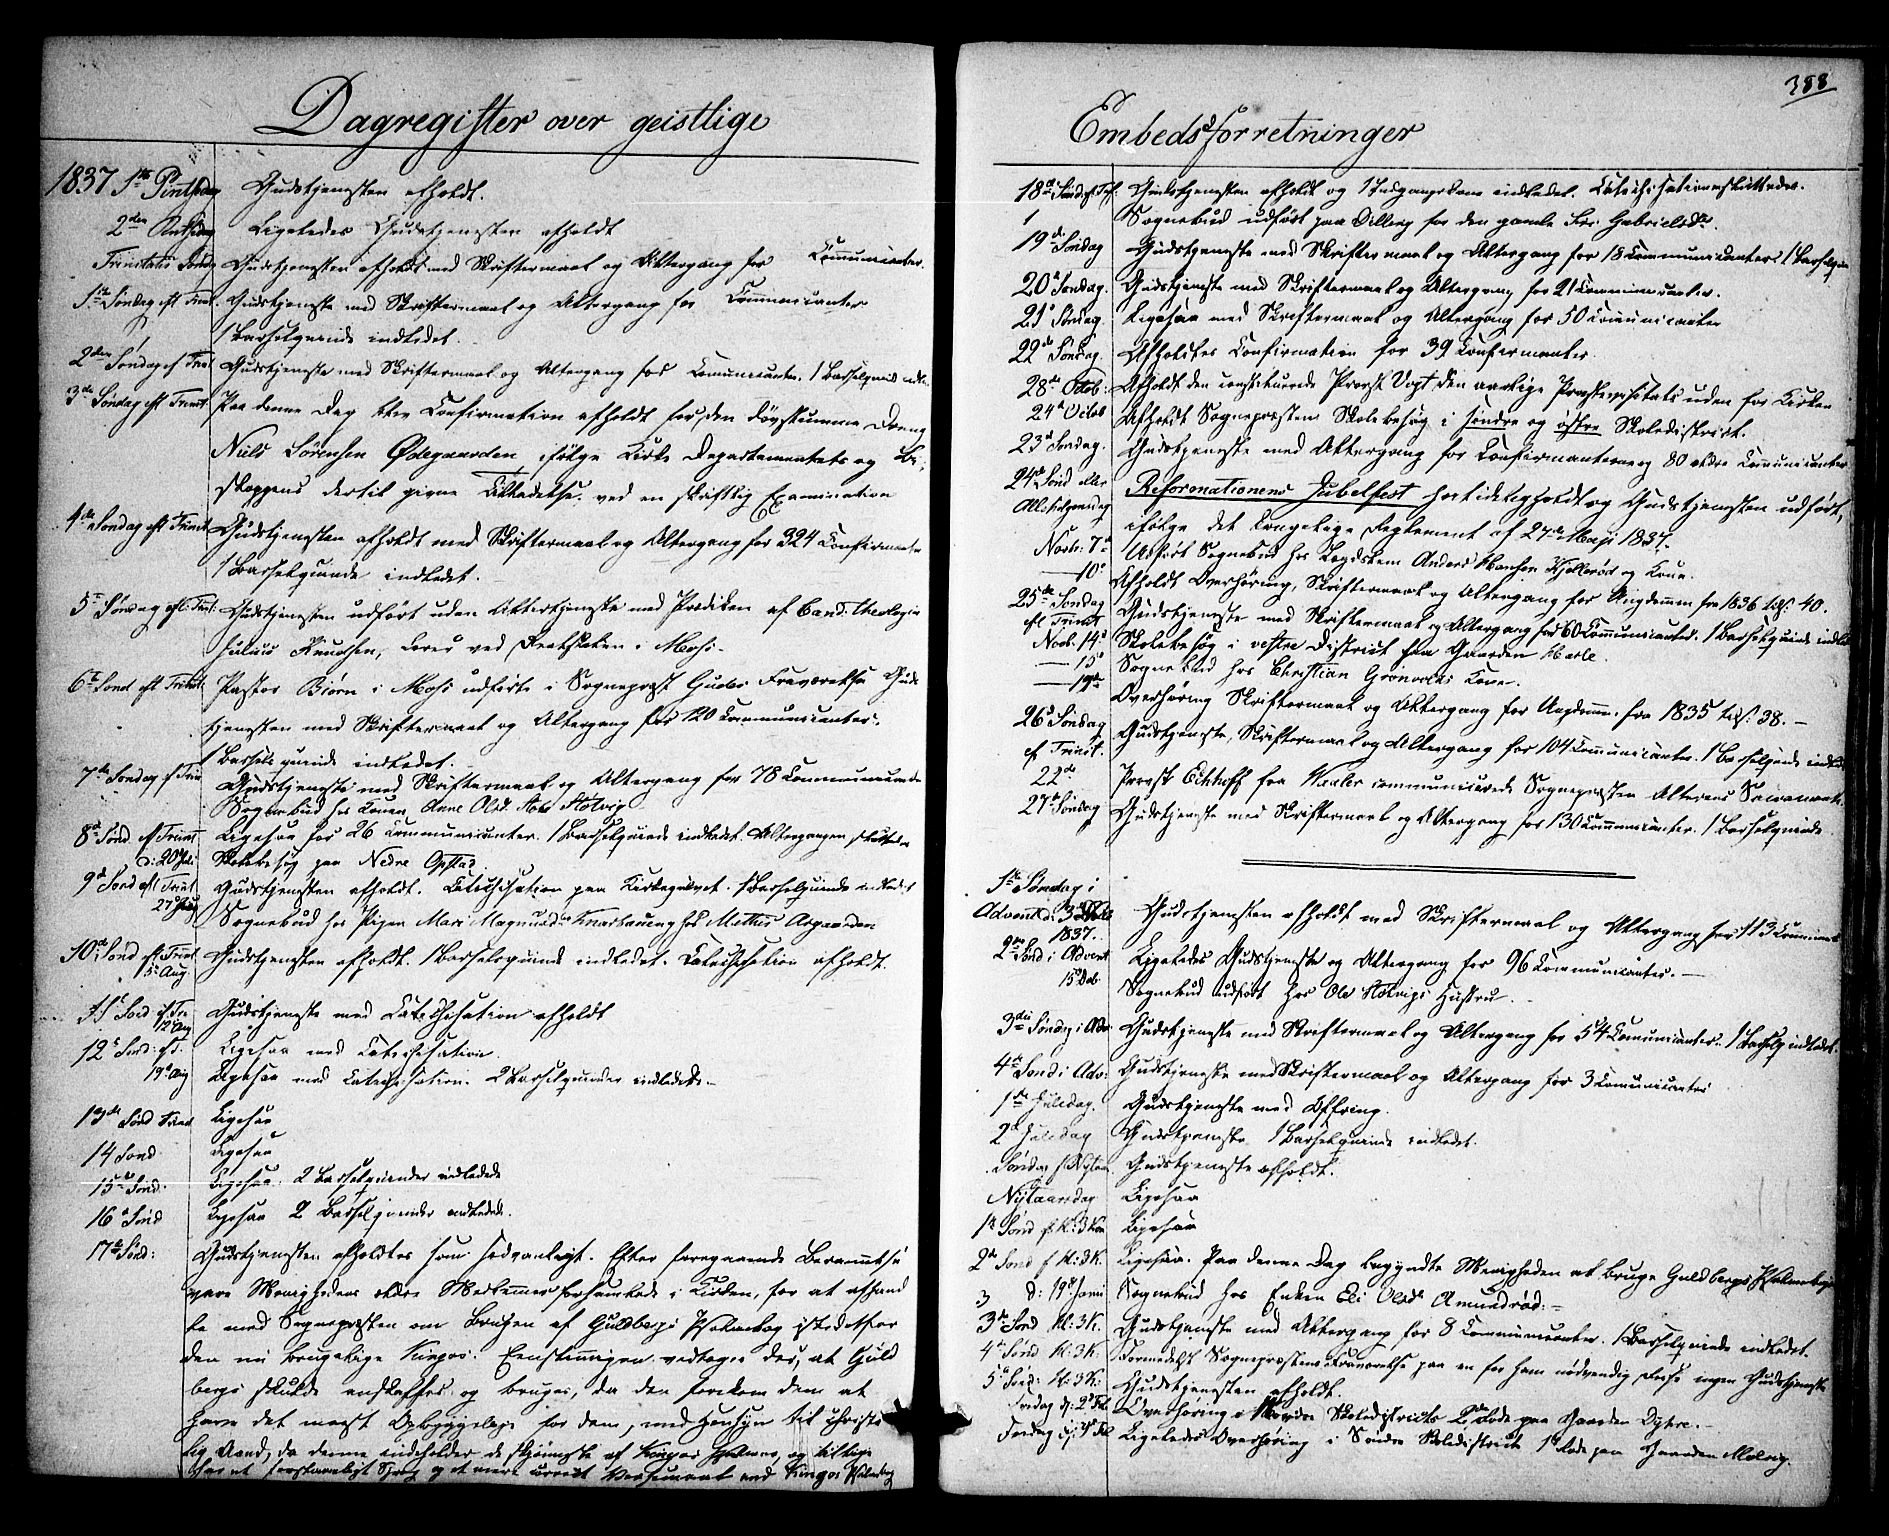 388
Dagregister over geistlige
1837 1ste Pintsedag Gudstjenesten afholdt.
2den Pintsedag Ligeledes Gudstjenesten afholdt
Trinitatis Søndag Gudstjenesten afholdt med Skriftermaal og Altergang for Communicanter.
1ste Søndag eft Trinit. Gudstjeneste med Skriftermaal og Altergang for Communicanter
1 Barselqvinde indledet.
2den Søndag ef Trinit Gudstjeneste med Skriftermaal og Altergang for Communicanter. 1 Barselqvind indl.
3die Søndag eft Trinit. Paa denne Dag blev Confirmation afholdt for den døvstumme Dreng
Niels Sørensen Ødegaarden ifølge Kirke Departementets og Bi-
skoppens dertil givne Tilladelse, ved en skriftlig Examination
4de Søndag eft Trinit. Gudstjenesten afholdt med Skriftermaal og Altergang for 324 Confirmanter
1 Barselqvinde indledet.
5te Søndag eft Trinit. Gudstjenesten udført uden Altertjeneste med Prædiken af Cand. theologiæ
Julius Knudsen, Lærer ved Realskolen i Moss.
6te Sønd eft Trinit: Pastor Biørn i Moss udførte i Sognepræst Gudes Fraværelse Guds
tjenesten med Skriftermaal og Altergang for 120 Communicanter.
1 Barselqvinde indledet.
7de Søndag ef Trin Gudstjeneste med Skriftermaal og Altergang for 78 Communicanter
Sognebud hos Konen Anne Olsd. Støtvig
8de Sønd ef Trinit Ligesaa for 26 Communicanter. 1 Barselqvinde indledet. Altergangen
d: 20 Juli Skolebesøg paa Nedre Opstad.
9de Sønd eft Trinit Gudstjenesten afholdt. Catechisation paa Kirkegulvet. 1 Barselqvinde indledet
27 Juli Sognebud hos Pigen Mari Magnusd. Knarhaug hos Mathis Aagaarden
10de Sønd eft Trinit Gudstjenesten afholdt. 1 Barselqvinde indledet. Catechisation afholdt.
15 Aug.
11te Sønd ef Tr. Gudstjeneste med Catechisation afholdt
12 Aug
12te Sønd: ef. Ligesaa med Catechisation.
19 Aug Ligesaa med Catechisation. 2 Barselqvinder indledede.
13de Sønd Trinit Ligesaa
14 Sønd Ligesaa
15de Sønd. Ligesaa. 2 Barselqvinder indledede
16de Sønd Ligesaa 2 Barselqvinder indledede.
17de Sønd: Gudstjenesten afholdtes som sædvanligt. Efter foregaaende Berammelse
vare Menighedens ældre Medlemmer forsamlede i Kirken, for at afhand
le med Sognepræsten om Brugen af Guldbergs Psalmebog istedetfor
den nu brugelige Kingos. Eenstemmigen vedtoges der, at Guld
bergs skulde anskaffes og bruges, da den forekom dem at
have det meest Opbyggelige for dem, med Hensyn til christe
lig Aand, da denne indeholder de skjønneste af Kingos Psalmer, og tillige
har et forstaaeligt Sprog og et mere correct Versemaal end Kingos Psalmebog
Embedsforretninger
18de Sønd. ef Trf. Gudstjenesten afholdt og 1 Indgangskone indledet. Catechisation sluttedes.
1 Sognebud udført paa Dilling for den gamle Siri Gabrielsdr.
19de Søndag Gudstjeneste med Skriftermaal og Altergang for 18 Communicanter. 1 Barselqvin
20de Søndag. Gudstjeneste med Skriftermaal og Altergang for 21 Communicanter.
21de Søndag. Ligesaa med Skriftermaal og Altergang for 50 Communicanter
22de Søndag. Afholdtes Confirmation for 39 Confirmanter.
28de Octob: Afholdt den constituerede Provst Vogt den aarlige Provstevisitats uden for Kirken
24de Octob Afholdt Sognepræsten Skolebesøg i søndre og østre Skoledistrict.
23de Søndag. Gudstjeneste med Altergang for Confirmanterne og 80 andre Communicanter
24de Sønd eller Reformationens Jubelfest høitideligholdt og Gudstjenesten udført,
Allehelgensdag ifølge det kongelige Reglement af 27de Maji 1837.
Novb: 7de Udført Sognebud hos Lægdslem Anders Hansen Kjellerød og Kone.
— 10de Afholdt Overhøring, Skriftermaal og Altergang for Ungdommen fra 1836 tils: 40.
25de Søndag Gudstjeneste med Skriftermaal og Altergang for 60 Communicanter. 1 Barselqvinde indledet
eft Trinit
Novb. 14de Skolebesøg i vestre District paa Gaarden Karle.
— 15de Sognebud hos Christian Grønvolds Kone.
— 19de Overhøring Skriftermaal og Altergang for Ungdomm. fra 1835 tils: 38.—
26de Søndag Gudstjeneste, Skriftermaal og Altergang for 104 Communicanter. 1 Barselqvinde indledet
ef Trinit.
22de Provst Eckhoff fra Vaaler communicerede Sognepræsten Alterens Sacramente.
27de Søndag Gudstjeneste med Skriftermaal og Altergang for 130 Communicanter. 1 Barselqvinde
1ste Søndag i
Advent d: 3 Dec Gudstjenesten afholdt med Skriftermaal og Altergang for 113 Communic
1837.
2den Sønd i Advent Ligeledes Gudstjeneste og Altergang for 96 Communicanter.—
15 Deb Sognebud udført hos Ole Støtvigs Hustru.
3die Søndag i Adv. Gudstjeneste med Skriftermaal og Altergang for 54 Communicanter. 1 Barselq indledet.
4de Sønd i Adv: Gudstjeneste med Skriftermaal og Altergang for 3 Communicanter
1ste Juledag. Gudstjeneste med Offring.
2d Juledag Gudstjeneste 1 Barselqvinde indledet.
Søndag f Nytaar Gudstjeneste afholdt.
Nytaarsdag Ligesaa
1ste Sønd f H: 3 Kon Ligesaa
2de Sønd f H: 3 K. Ligesaa. Paa denne Dag begyndte Menigheden at bruge Guldbergs Psalmebog
3 d: 19de Janu Sognebud hos Enken Eli Olsdr Amundrød.—
3de Sønd H: 3 K. Gudstjeneste med Altergang for 8 Communicanter. 1 Barselqvinde indledet.
4de Sønd H: 3 K. Formedelst Sognepræstens Fraværelse paa en for ham nødvendig Reise ingen Gudstjeneste
5te Sønd: H: 3 K: Gudstjenesten afholdt.
Fredag d: 2 Feb Overhøring i Nordre Skoledistricts 2den Rode paa Gaarden Dyhre.—
Fredag d: 9 Feb Ligeledes Overhøring i Søndre Skoledistrict 1ste Rode paa Gaarden Melvig.